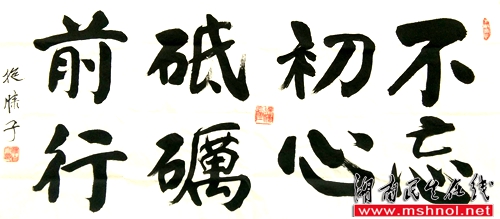 不忘
初心
砥礪
前行
湖南民生在线
www.mshnol.net